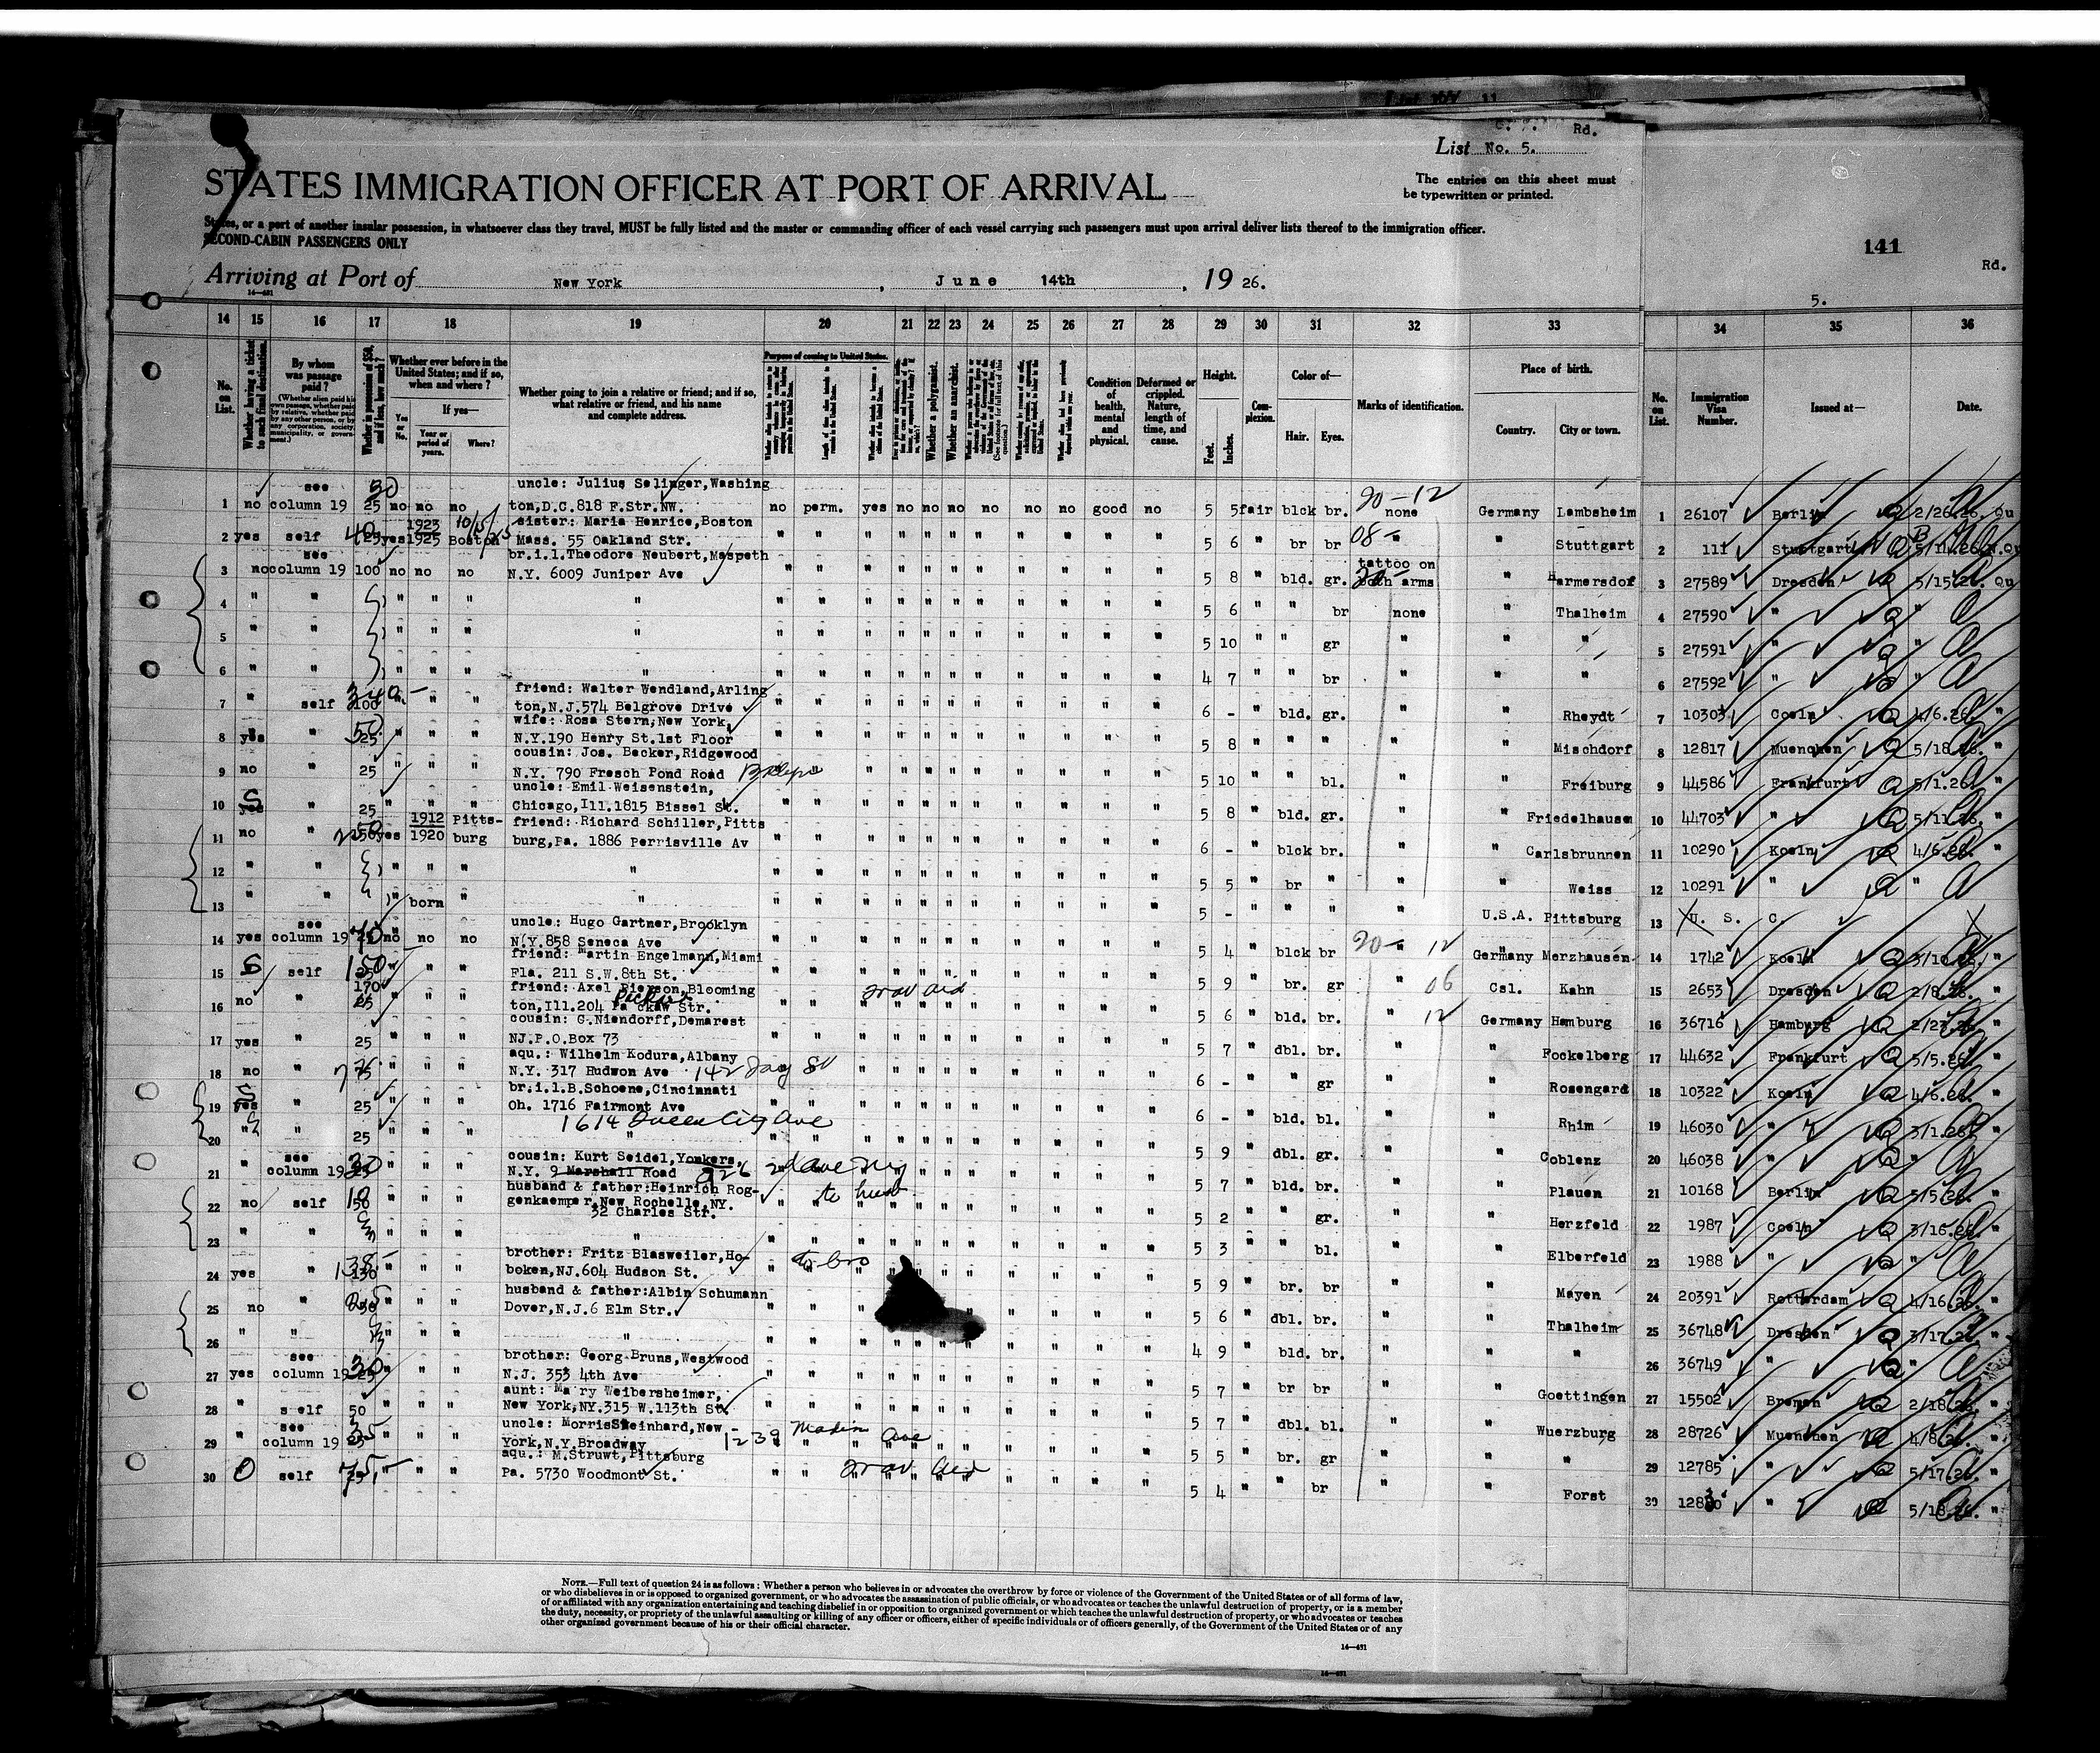 C. V. Rd.
List No. 5.
STATES IMMIGRATION OFFICER AT PORT OF ARRIVAL
The entries on this sheet must
be typewritten or printed.
States, or a port of another insular possession, in whatsoever class they travel, MUST be fully listed and the master or commanding officer of each vessel carrying such passengers must upon arrival deliver lists thereof to the immigration officer.
SECOND-CABIN PASSENGERS ONLY
141
Rd.
Arriving at Port of New York, June 14th, 19 26.
14—491
5.
14 15 16 17 18 19 20 21 22 23 24 25 26 27 28 29 30 31 32 33 34 35 36
No. on List.
Whether having a ticket to such final destination.
By whom was passage paid?
(Whether alien paid his own passage, whether paid by relative, whether paid by any other person, or by any corporation, society, municipality, or government.)
Whether in possession of $50, and if less, how much?
Whether ever before in the United States; and if so, when and where?
Yes or No.
If yes—
Year or period of years.
Where?
Whether going to join a relative or friend; and if so, what relative or friend, and his name and complete address.
Purpose of coming to United States.
Whether a polygamist.
Whether an anarchist.
Condition of health, mental and physical.
Deformed or crippled. Nature, length of time, and cause.
Height.
Feet. Inches.
Complexion.
Color of—
Hair. Eyes.
Marks of identification.
Place of birth.
Country. City or town.
No. on List.
Immigration Visa Number.
Issued at—
Date.
see 50 uncle: Julius Selinger, Washing
1 no column 19 25 no no no ton, D.C. 818 F.Str.NW. no perm. yes no no no no no no good no 5 5 fair blck br. none Germany Lambsheim 1 26107 Berlin 2/26.26. Qu
20-12
40 1923 10/5/25 sister: Maria Henrice, Boston
2 yes self 25 yes 1925 Boston Mass. 55 Oakland Str. " " " " " " " " " " " 5 6 " br br 08- " " Stuttgart 2 111 Stuttgart 5/11.26. N.Qu
see br.i.l. Theodore Neubert, Maspeth tattoo on
3 no column 19 100 no no no N.Y. 6009 Juniper Ave " " " " " " " " " " " 5 8 " bld. gr. both arms " Harmersdof 3 27589 Dresden 5/15.26. Qu
4 " " " " " " " " " " " " " " " " " " 5 6 " " br none " Thalheim 4 27590 " "
5 " " " " " " " " " " " " " " " " " " 5 10 " " gr " " " 5 27591 " "
6 " " " " " " " " " " " " " " " " " " 4 7 " " br " " " 6 27592 " "
340- friend: Walter Wendland, Arling
7 " self 100 " " " ton, N.J. 574 Belgrove Drive " " " " " " " " " " " 6 - " bld. gr. " " Rheydt 7 10303 Coeln 4/6.26. "
50 wife: Rosa Stern, New York,
8 yes " 25 " " " N.Y. 190 Henry St. 1st Floor " " " " " " " " " " " 5 8 " " " " " Mischdorf 8 12817 Muenchen 5/18.26. "
cousin: Jos. Becker, Ridgewood
9 no " 25 " " " N.Y. 790 Fresch Pond Road " " " " " " " " " " " 5 10 " " bl. " " Freiburg 9 44586 Frankfurt 5/1.26. "
uncle: Emil Weisenstein,
10 yes " 25 " " " Chicago, Ill. 1815 Bissel St. " " " " " " " " " " " 5 8 " bld. gr. " " Friedelhausen 10 44703 " 5/11.26. "
1912 Pitts- friend: Richard Schiller, Pitts
11 no " 250 yes 1920 burg burg, Pa. 1886 Perrisville Av " " " " " " " " " " " 6 - " blck br. " " Carlsbrunnen 11 10290 Koeln 4/6.26. "
12 " " " " " " " " " " " " " " " " " " 5 5 " br " " " Weiss 12 10291 " "
13 " " " born " " " " " " " " " " " " " 5 - " " " " U.S.A. Pittsburg 13 U. S. C.
see 70 uncle: Hugo Gartner, Brooklyn
14 yes column 19 25 no no no N.Y. 858 Seneca Ave " " " " " " " " " " " 5 4 " blck br 20- 12 Germany Merzhausen 14 1742 Koeln 3/10.26. "
150 friend: Martin Engelmann, Miami
15 S self 25 " " " Fla. 211 S.W. 8th St. " " " " " " " " " " " 5 9 " br. gr " 06 Csl. Kahn 15 2653 Dresden 2/8.26. "
170 friend: Axel Pierson, Blooming
16 no " 25 " " " ton, Ill. 204 Str. " " " " " " " " " " " 5 6 " bld. br. " 12 Germany Hamburg 16 36716 Hamburg 2/27.26. "
cousin: G. Niendorff, Demarest
17 yes " 25 " " " NJ. P.O. Box 73 " " " " " " " " " " " 5 7 " dbl. br. " " Fockelberg 17 44632 Frankfurt 5/5.26. "
aqu.: Wilhelm Kodura, Albany
18 no " 75 " " " N.Y. 317 Hudwon Ave 142 Jay St " " " " " " " " " " " 6 - " " gr " " Rosengard 18 10322 Koeln 4/6.26. "
br.i.l. B. Schoene, Cincinnati
19 yes " 25 " " " Oh. 1716 Fairmont Ave " " " " " " " " " " " 6 - " bld. bl. " " Rhim 19 46030 " 3/1.26. "
1614 Queen City Ave
20 " " 25 " " " " " " " " " " " " " " " 5 9 " dbl. gr. " " Coblenz 20 46038 " "
see 30 cousin: Kurt Seidel, Yonkers,
21 " column 19 25 " " " N.Y. 9 Marshall Road " " " " " " " " " " " 5 7 " bld. br. " " Plauen 21 10168 Berlin 5/5.26. "
husband & father: Heinrich Rog-
22 no self 50 " " " genkaemper, New Rochelle, NY. to husb " " " " " " " " " " " 5 2 " " gr. " " Herzfeld 22 1987 Coeln 3/16.26. "
32 Charles Str.
23 " " " " " " " " " " " " " " " " " 5 3 " " bl. " " Elberfeld 23 1988 " " "
brother: Fritz Blasweiler, Ho- to bro
24 yes " 130 " " " boken, NJ. 604 Hudson St. " " " " " " " " " " " 5 9 " br. br " " Mayen 24 20391 Rotterdam 4/16.26. "
husband & father: Albin Schumann
25 no " " " " Dover, N.J. 6 Elm Str. " " " " " " " " 5 6 " dbl. br. " " Thalheim 25 36748 Dresden 3/17.26. "
26 " " " " " " " " " " " " " " " " " 4 9 " bld. br. " " " 26 36749 " "
see 30 brother: Georg Bruns, Westwood
27 yes column 19 25 " " " N.J. 353 4th Ave " " " " " " " " " " " 5 7 " br br " " Goettingen 27 15502 Bremen 2/18.26. "
aunt: Mary Weibersheimer,
28 " self 50 " " " New York, NY. 315 W. 113th St. " " " " " " " " " " " 5 7 " dbl. bl. " " Wuerzburg 28 28726 Muenchen 4/8.26. "
see 35 uncle: Morris Steinhard, New
29 " column 19 25 " " " York, N.Y. Broadway 1239 Madison Ave " " " " " " " " " " " 5 5 " br. gr " " " 29 12785 " 5/17.26. "
aqu.: M. Struwt, Pittsburg
30 0 self 25 " " " Pa. 5730 Woodmont St. " " " " " " " " " " " 5 4 " " br " " Forst 30 " 5/18.26. "
NOTE.—Full text of question 24 is as follows: Whether a person who believes in or advocates the overthrow by force or violence of the Government of the United States or of all forms of law,
or who disbelieves in or is opposed to organized government, or who advocates the assassination of public officials, or who advocates or teaches the unlawful destruction of property, or is a member
of or affiliated with any organization entertaining and teaching disbelief in or opposition to organized government or which teaches the unlawful destruction of property, or who advocates or teaches
the duty, necessity, or propriety of the unlawful assaulting or killing of any officer or officers, either of specific individuals or of officers generally, of the Government of the United States or of any
other organized government because of his or their official character.
14—491
14—491